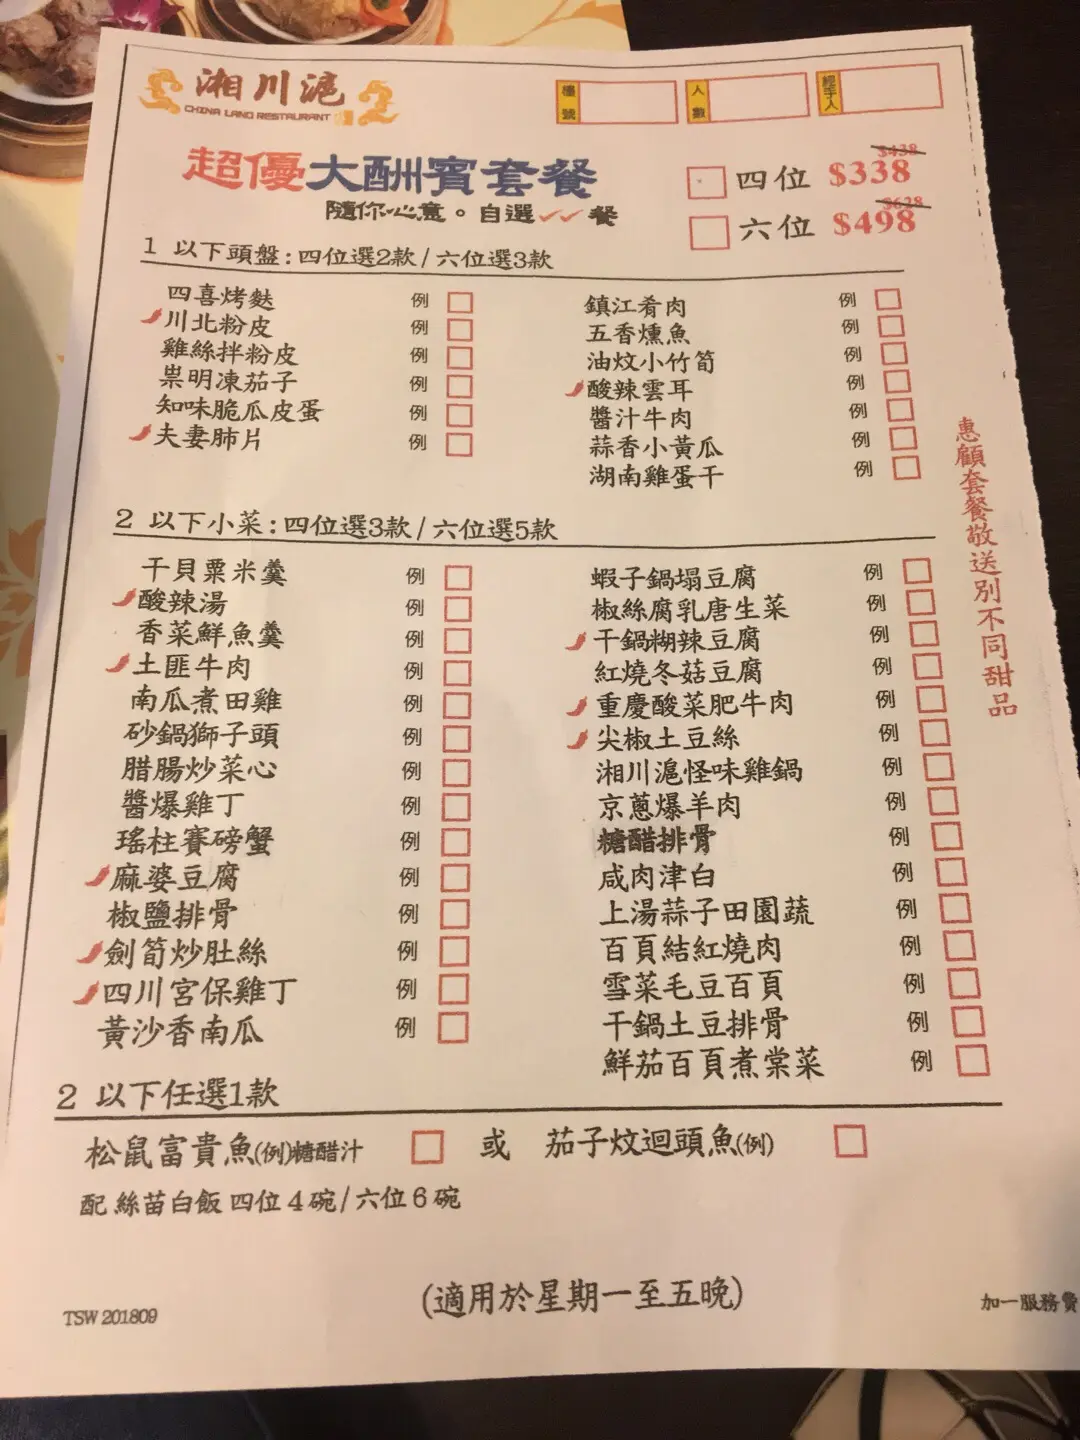 湘川滬
CHINA LAND RESTAURANT
檯號
人數
經手人
超優大酬賓套餐
隨你心意。自選✓✓餐
四位 $438 $338
六位 $628 $498
1 以下頭盤:四位選2款/六位選3款
四喜烤麩 例
川北粉皮 例
雞絲拌粉皮 例
祟明凍茄子 例
知味脆瓜皮蛋 例
夫妻肺片 例
鎮江肴肉 例
五香燻魚 例
油炆小竹筍 例
酸辣雲耳 例
醬汁牛肉 例
蒜香小黃瓜 例
湖南雞蛋干 例
2 以下小菜:四位選3款/六位選5款
干貝粟米羹 例
酸辣湯 例
香菜鮮魚羹 例
土匪牛肉 例
南瓜煮田雞 例
砂鍋獅子頭 例
腊腸炒菜心 例
醬爆雞丁 例
瑤柱賽磅蟹 例
麻婆豆腐 例
椒鹽排骨 例
劍筍炒肚絲 例
四川宮保雞丁 例
黃沙香南瓜 例
蝦子鍋塌豆腐 例
椒絲腐乳唐生菜 例
干鍋糊辣豆腐 例
紅燒冬菇豆腐 例
重慶酸菜肥牛肉 例
尖椒土豆絲 例
湘川滬怪味雞鍋 例
京蔥爆羊肉 例
糖醋排骨 例
咸肉津白 例
上湯蒜子田園蔬 例
百頁結紅燒肉 例
雪菜毛豆百頁 例
干鍋土豆排骨 例
鮮茄百頁煮棠菜 例
惠顧套餐敬送別不同甜品
2 以下任選1款
松鼠富貴魚(例)糖醋汁 或 茄子炆迴頭魚(例)
配 絲苗白飯 四位4碗/六位6碗
(適用於星期一至五晚)
TSW 201809
加一服務費